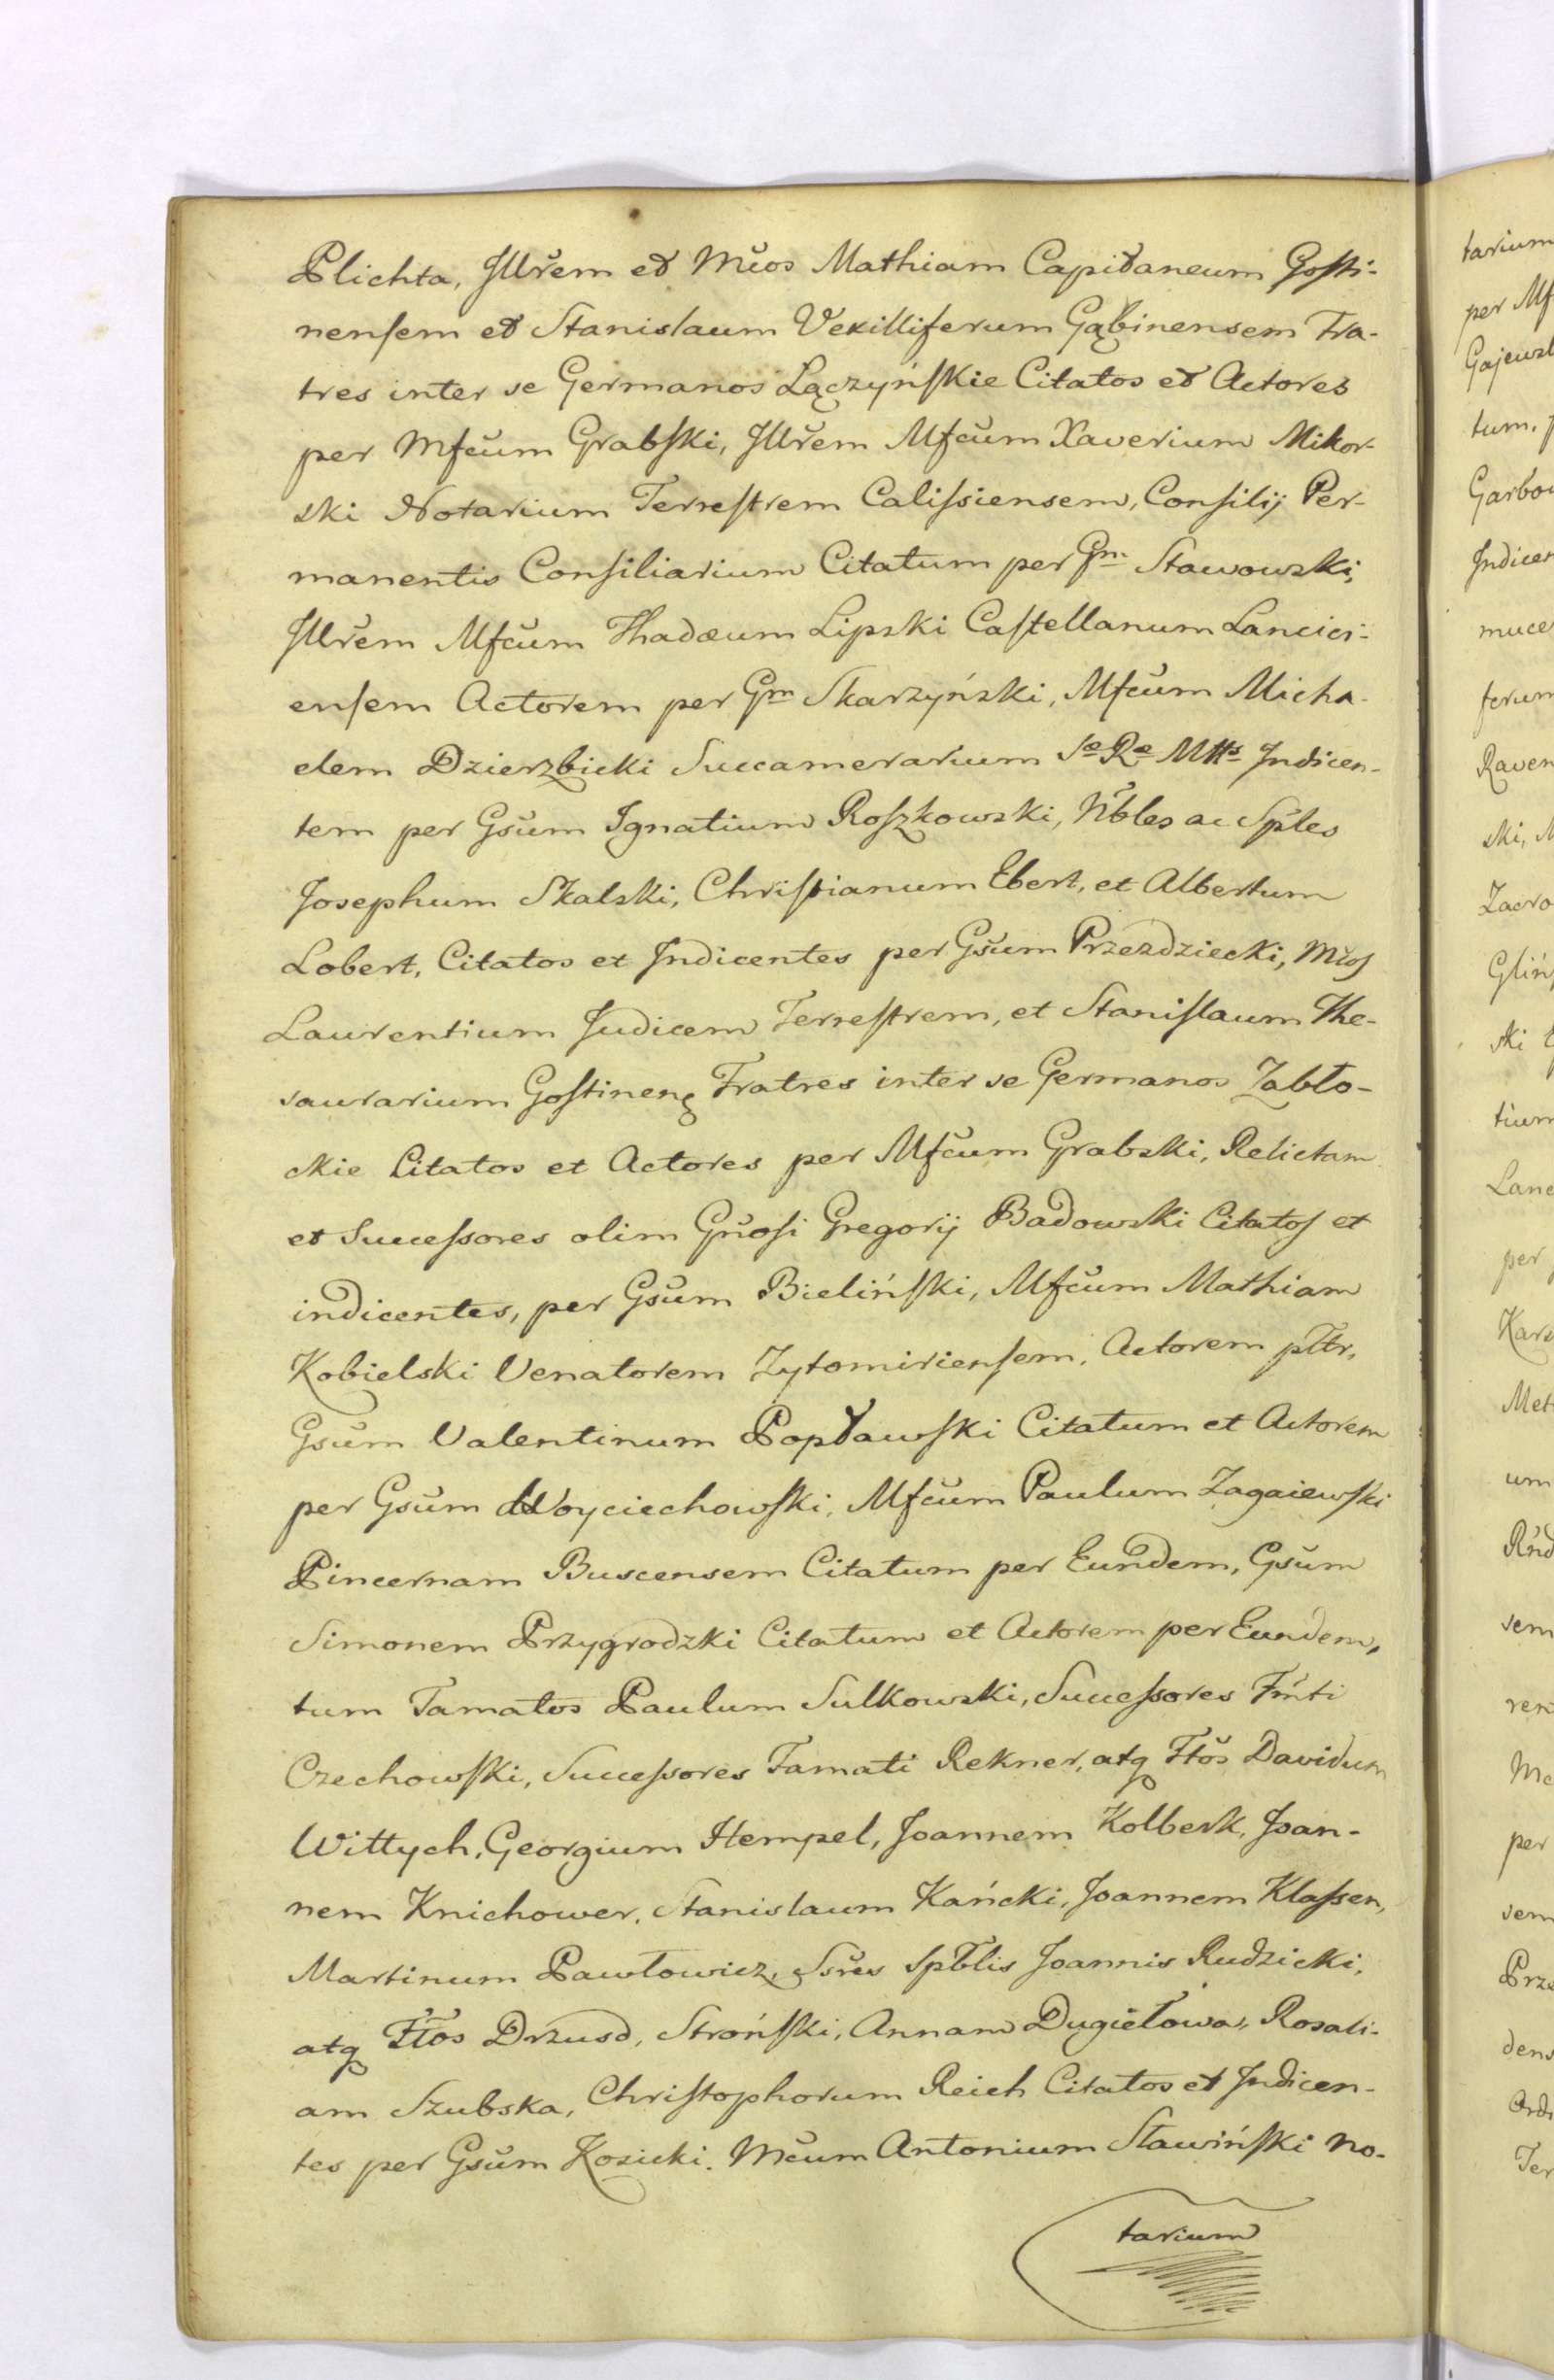 Plichta, Jllr̃em et Mc̃os Mathiam Capitaneum Gosti-
nensem et Stanislaum Vexilliferum Gąbinensem Fra-
tres inter se Germanos Łączyńskie Citatos et Actores
per Mfc̃um Grabski, Jllr̃em Mfc̃um Xaverium Mikor-
ski Notarium Terrestrem Calissiensem, Consilij Per-
manentis Consiliarium Citatum per Gm Stawowski,
Jllr̃em Mfc̃um Thadæum Lipski Castellanum Lancici-
ensem Actorem per Gm Skarzyński, Mfc̃um Micha-
elem Dzierzbicki Succamerarium Sæ Ræ Mtts Indicen-
tem per Gs̃um Ignatium Roszkowski, Nb̃les ac Sp̃les
Josephum Skalski, Christianum Ebert, et Albertum
Lobert, Citatos et Indicentes per Gs̃um Przezdziecki, Mc̃os
Laurentium Judicem Terrestrem, et Stanislaum The-
saurarium Gostinen Fratres inter se Germanos Zabło-
ckie Citatos et Actores per Mfc̃um Grabski, Relictam
et Successores olim Gñosi Gregorij Badowski Citatos et
indicentes, per Gs̃um Bieliński, Mfc̃um Mathiam
Kobielski Venatorem Zytomiriensem, Actorem pltr,
Gs̃um Valentinum Popławski Citatum et Actorem
per Gs̃um Woyciechowski, Mfc̃um Paulum Zagaiewski
Pincernam Buscensem Citatum per Eundem, Gs̃um
Simonem Przygrodzki Citatum et Actorem per Eundem,
tum Famatos Paulum Sulkowski, Successores Fm̃ti
Czechowski, Successores Famati Rekner, atq Ftõs Davidum
Wittych, Georgium Hempel, Joannem Kolberk, Joan-
nem Knichower, Stanislaum Kańcki, Joannem Klassen,
Martinum Pawłowicz, Ssr̃es Spb̃lis Joannis Rudzicki,
atq Ftõs Drzusd, Stroński, Annam Dugiełowa, Rosali-
am Szubska, Christophorum Reich Citatos et Indicen-
tes per Gs̃um Kozicki. Mc̃um Antonium Sławiński No-
tarium
tarium
per Mf
Gajewsk
tum,
Garbo
Indicen
muce
ferum
Raven
ski, M
Zacro
Gliń
ski
tium
Lanc
per
Kars
Met
um
sem
per
sem
Prze
dens
Ordi
Ter